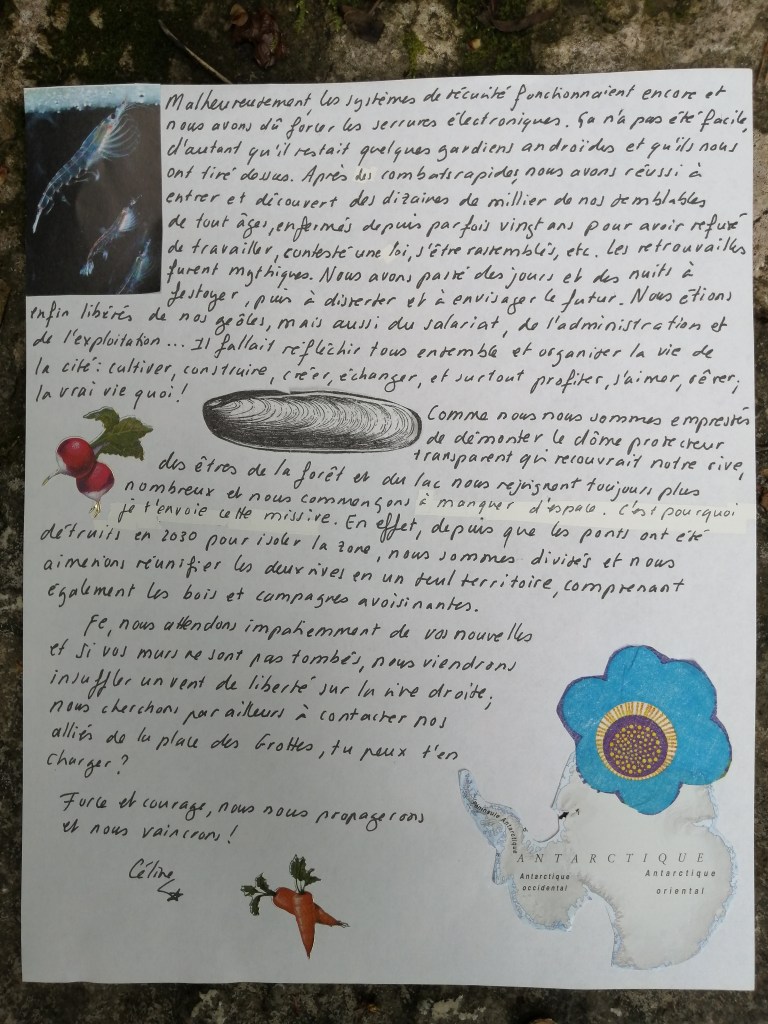 Malheureusement, les systèmes de sécurité fonctionnaient encore et
nous avons dû forcer les serrures électroniques. Ça n'a pas été facile,
d'autant qu'il restait quelques gardiens androïdes et qu'ils nous
ont tiré dessus. Après des combats rapides, nous avons réussi à
entrer et découvert des dizaines de millier de nos semblables
de tout âges, enfermés depuis parfois vingt ans pour avoir refusé
de travailler, contesté une loi, s'être rassemblés, etc. Les retrouvailles
furent mythiques. Nous avons passé des jours et des nuits à
festoyer, puis à disserter et à envisager le futur. Nous étions
enfin libérés de nos geôles, mais aussi du salariat, de l'administration et
de l'exploitation... Il fallait réfléchir tous ensemble et organiser la vie de
la cité: cultiver, construire, créer, échanger, et surtout profiter, s'aimer, rêver;
la vrai vie quoi!
Comme nous nous sommes empressés
de démonter le dôme protecteur
transparent qui recouvrait notre rive,
des êtres de la forêt et du lac nous rejoignent toujours plus
nombreux et nous commençons à manquer d'espace. C'est pourquoi
je t'envoie cette missive. En effet, depuis que les ponts ont été
détruits en 2030 pour isoler la zone, nous sommes divisés et nous
aimerions réunifier les deux rives en un seul territoire, comprenant
également les bois et campagnes avoisinantes.
Fe, nous attendons impatiemment de vos nouvelles
et si vos murs ne sont pas tombés, nous viendrons
insuffler un vent de liberté sur la rive droite;
nous cherchons par ailleurs à contacter nos
alliés de la place des Grottes, tu peux t'en
charger?
Force et courage, nous nous propagerons
et nous vaincrons!
Céline
Péninsule Antarctique
ANTARCTIQUE
Antarctique
occidental
Antarctique
oriental